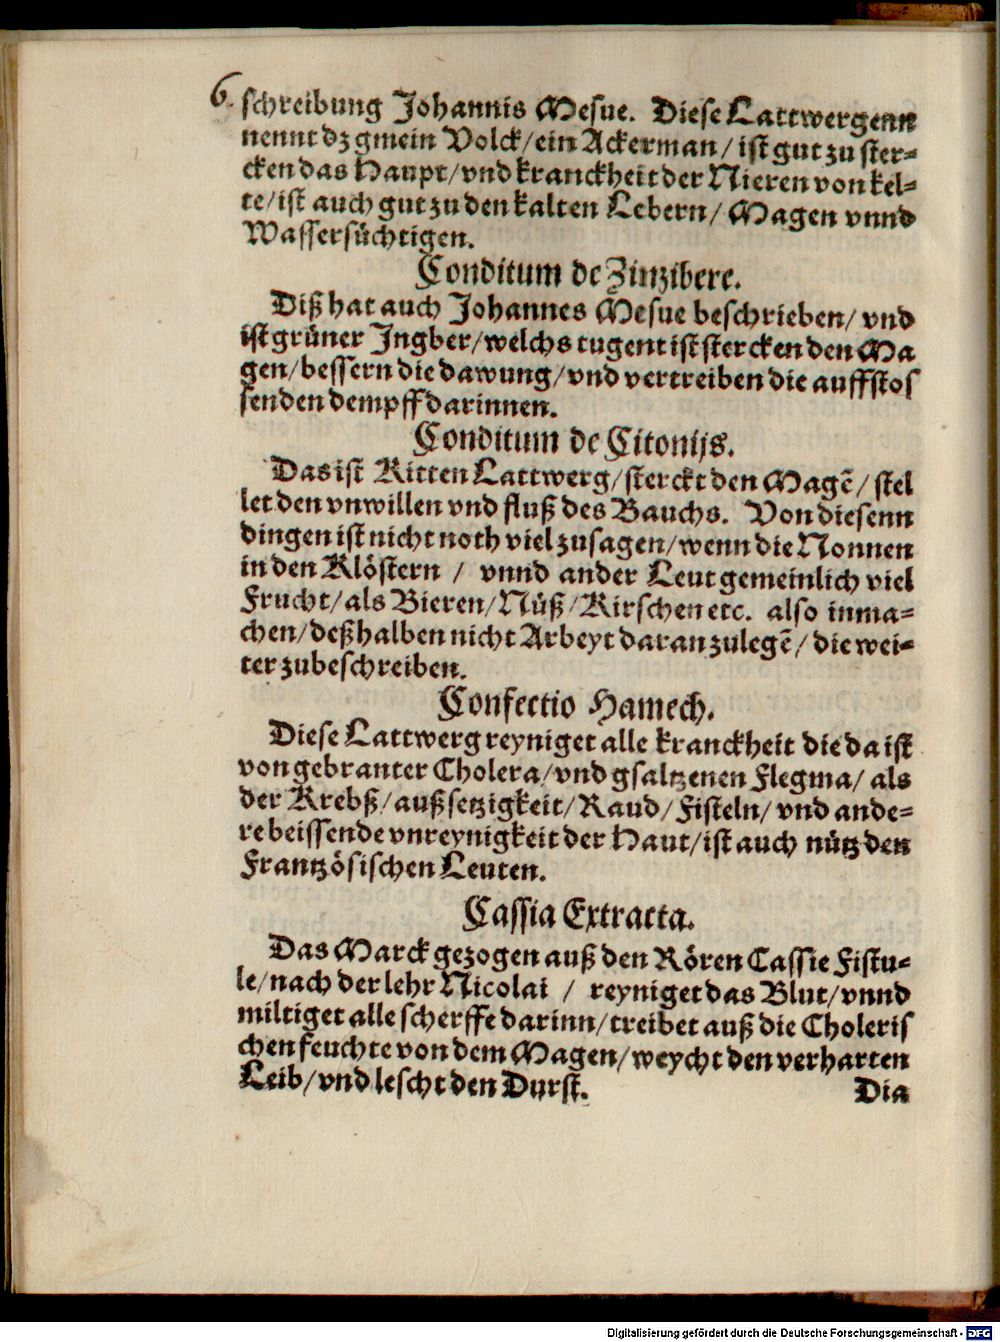 6. schreibung Johannis Mesue. Diese Lattwergenn
nennt dz gmein Volck/ein Ackerman/ ist gut zu ster-
cken das Haupt/vnd kranckheit der Nieren von kel-
te/ist auch gut zu den kalten Lebern/ Magen vnnd
Wassersüchtigen.
Conditum de Zinzibere.
Diß hat auch Johannes Mesue beschrieben/ vnd
ist grüner Ingber/welchs tugent ist stercken den Ma
gen/bessern die dawung/vnd vertreiben die auffstos
senden dempff darinnen.
Conditum de Citonijs.
Das ist Kitten Lattwerg/sterckt den Magẽ/ stel
let den vnwillen vnd fluß des Bauchs. Von diesenn
dingen ist nicht noth viel zusagen/wenn die Nonnen
in den Klöstern / vnnd ander Leut gemeinlich viel
Frucht/als Bieren/Nüß/Kirschen etc. also inma-
chen/deßhalben nicht Arbeyt daran zulegẽ/ die wei-
ter zubeschreiben.
Confectio Hamech.
Diese Lattwerg reyniget alle kranckheit die da ist
von gebranter Cholera/vnd gsaltzenen Flegma/ als
der Krebß/außsetzigkeit/Raud/Fisteln/ vnd ande-
re beissende vnreynigkeit der Haut/ist auch nütz den
Frantzösischen Leuten.
Cassia Extracta.
Das Marck gezogen auß den Rören Cassie Fistu-
le/nach der lehr Nicolai / reyniget das Blut/vnnd
miltiget alle scherffe darinn/treibet auß die Choleris
chen feuchte von dem Magen/weycht den verharten
Leib/vnd lescht den Durst.
Dia
Digitalisierung gefördert durch die Deutsche Forschungsgemeinschaft - DFG